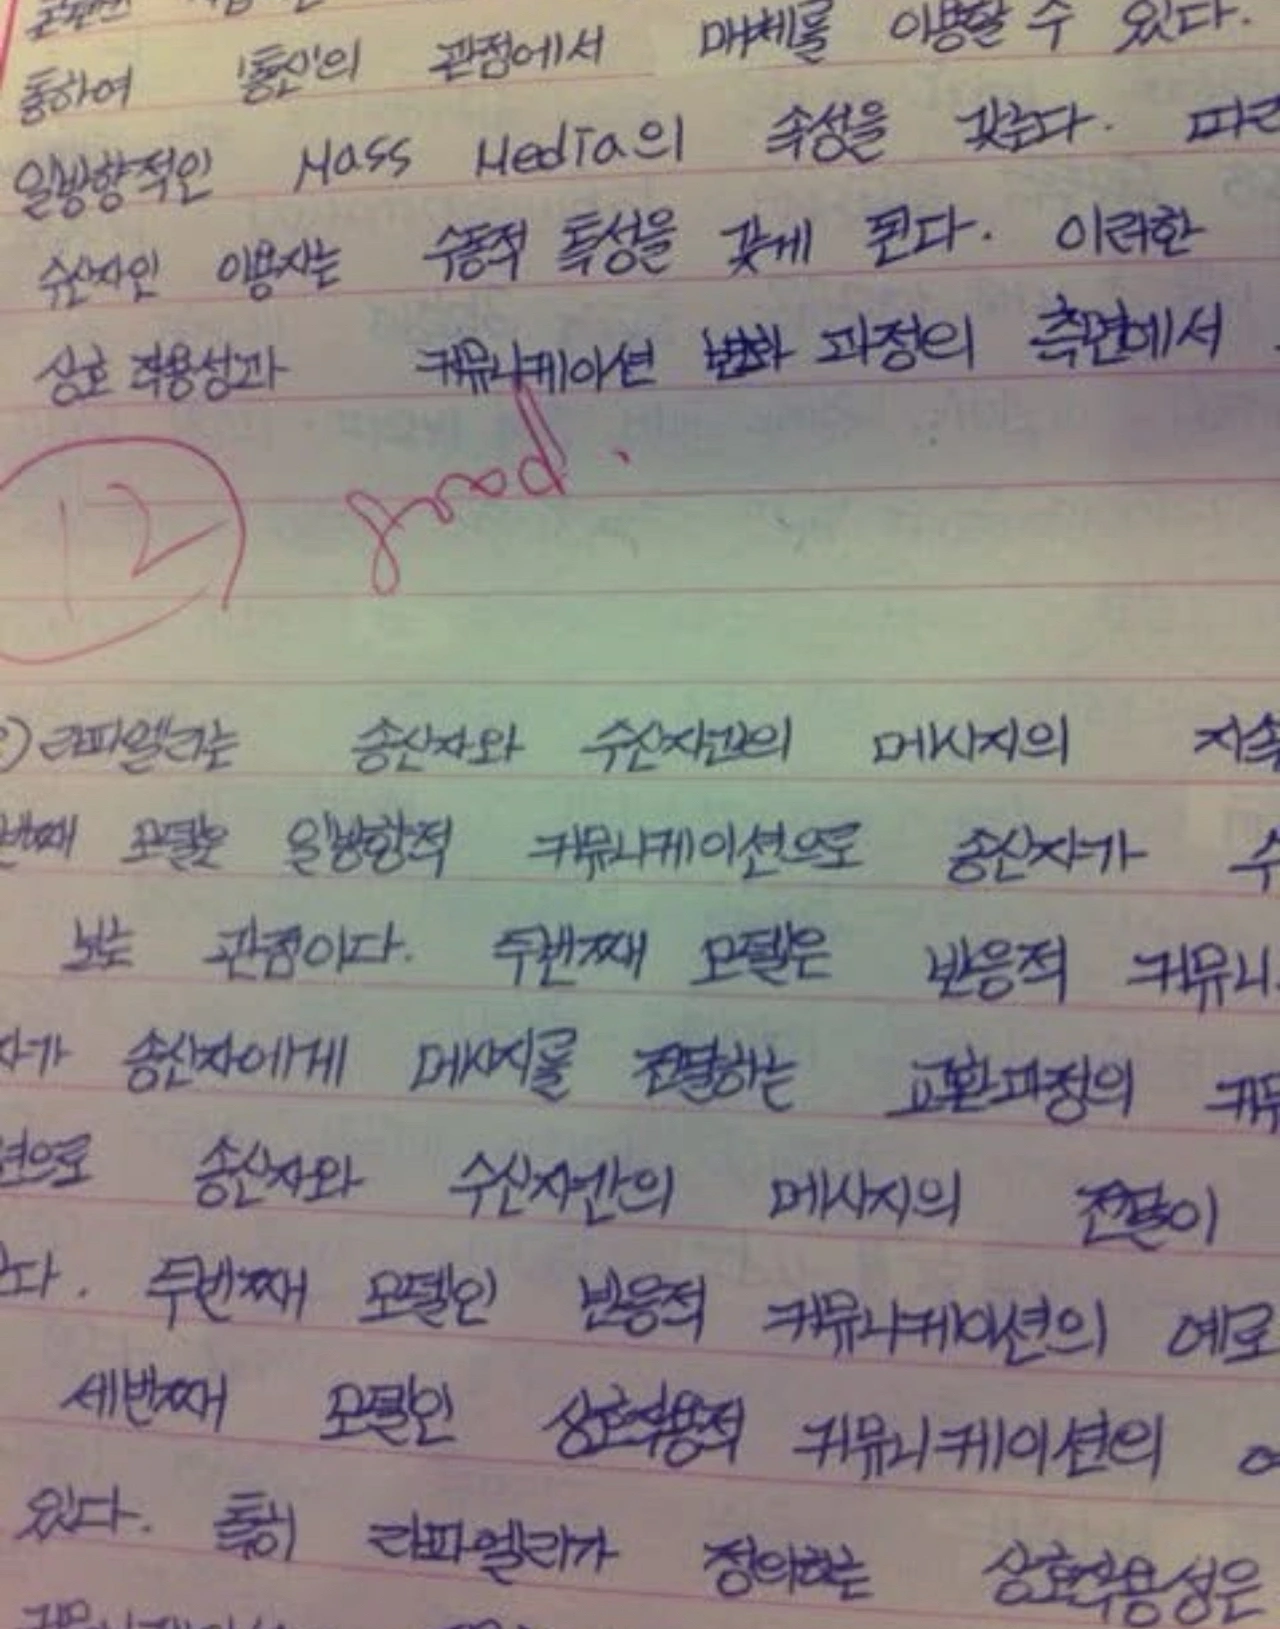 통하여 '통신'의 관점에서 매체를 이용할 수 있다.
일방향적인 Mass Media의 속성을 갖는다. 따라
수신자인 이용자는 수동적 특성을 갖게 된다. 이러한
상호 작용성과 커뮤니케이션 변화 과정의 측면에서
12 good.
2) 라파엘리는 송신자와 수신자간의 메시지의 지속
번째 모델은 일방향적 커뮤니케이션으로 송신자가 수
보는 관점이다. 두번째 모델은 반응적 커뮤니
자가 송신자에게 메시지를 전달하는 교환과정의 커뮤
션으로 송신자와 수신자간의 메시지의 전달이
다. 두번째 모델인 반응적 커뮤니케이션의 예로
세번째 모델인 상호작용적 커뮤니케이션의
있다. 특히 라파엘리가 정의하는 상호작용성은